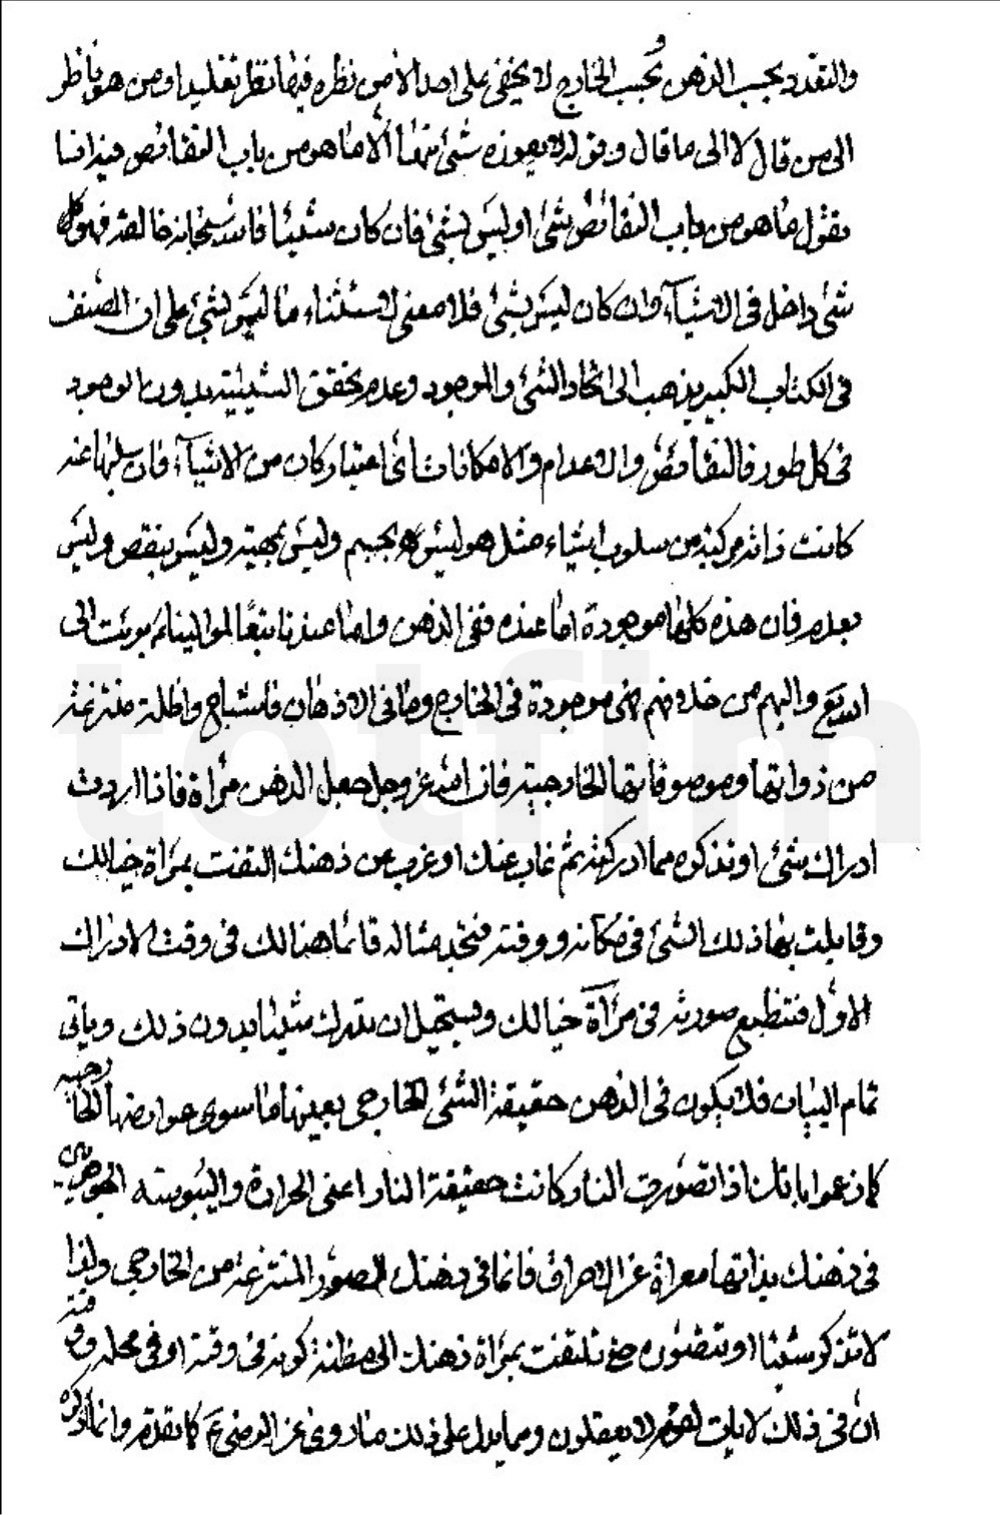 والتعدد بحسب الذهن وبحسب الخارج لا يخفى على احد الا من نظره فيها نظر تقليد او من هو ناظر
الى من قال لا الى ما قال وقوله لا يعوزه شئ منها الا ما هو من باب النقائص فيه انا
نقول ما هو من باب النقائص شئ او ليس بشئ فان كان شيئا فالله سبحانه خالقه فهو كل
شئ داخل فى الاشياء وان كان ليس بشئ فلا معنى لاستثناء ما ليس بشئ على ان المصنف
فى الكتاب الكبير يذهب الى اتحاد الشئ والموجود وعدم تحقق الشيئية بدون الوجود
فى كل طور فالنقائص والاعدام والامكانات باى اعتبار كان من الاشياء فان سلبها عنه
كانت ذاته مركبة من سلوب اشياء مثل هو ليس بجسم وليس بجهة وليس بنقص وليس
بعدم فان هذه كلها موجودة اما عنده ففى الذهن واما عندنا تبعًا لموالينا نبرء الى
الله تع واليهم من خلافهم فهى موجودة فى الخارج وما فى الاذهان فاشباح واظلة منتزعة
من ذواتها وموصوفاتها الخارجية فان الله عز وجل جعل الذهن مرآة فاذا اردت
ادراك شئ او تذكره مما ادركته ثم غاب عنك او عزب عن ذهنك التفت بمرآة خيالك
وقابلت بها ذلك الشئ فى مكانه ووقته فتجد مثاله قائما هنالك فى وقت الادراك
الاول فتنطبع صورته فى مرآة خيالك ويستحيل ان تدرك شيئا بدون ذلك وياتى
تمام البيان فلا يكون فى الذهن حقيقة الشئ الخارجى بعينها ما سوى عوارضها الخارجية
كما زعموا بانك اذا تصورت النار كانت حقيقة النار اعنى الحرارة واليبوسة الجوهريتين
فى ذهنك بذاتها معراة عن الاحراق فانما فى ذهنك الصور المنتزعة من الخارجى ولذا
لا تذكر شيئا او تتصوره حتى تلتفت بمرآة ذهنك الى مظنة كونه فى وقته او فى محله ووقته
ان فى ذلك لآيات لقوم يعقلون ومما يدل على ذلك ما روى عن الرضى ع كما تقدم وانما ذكره